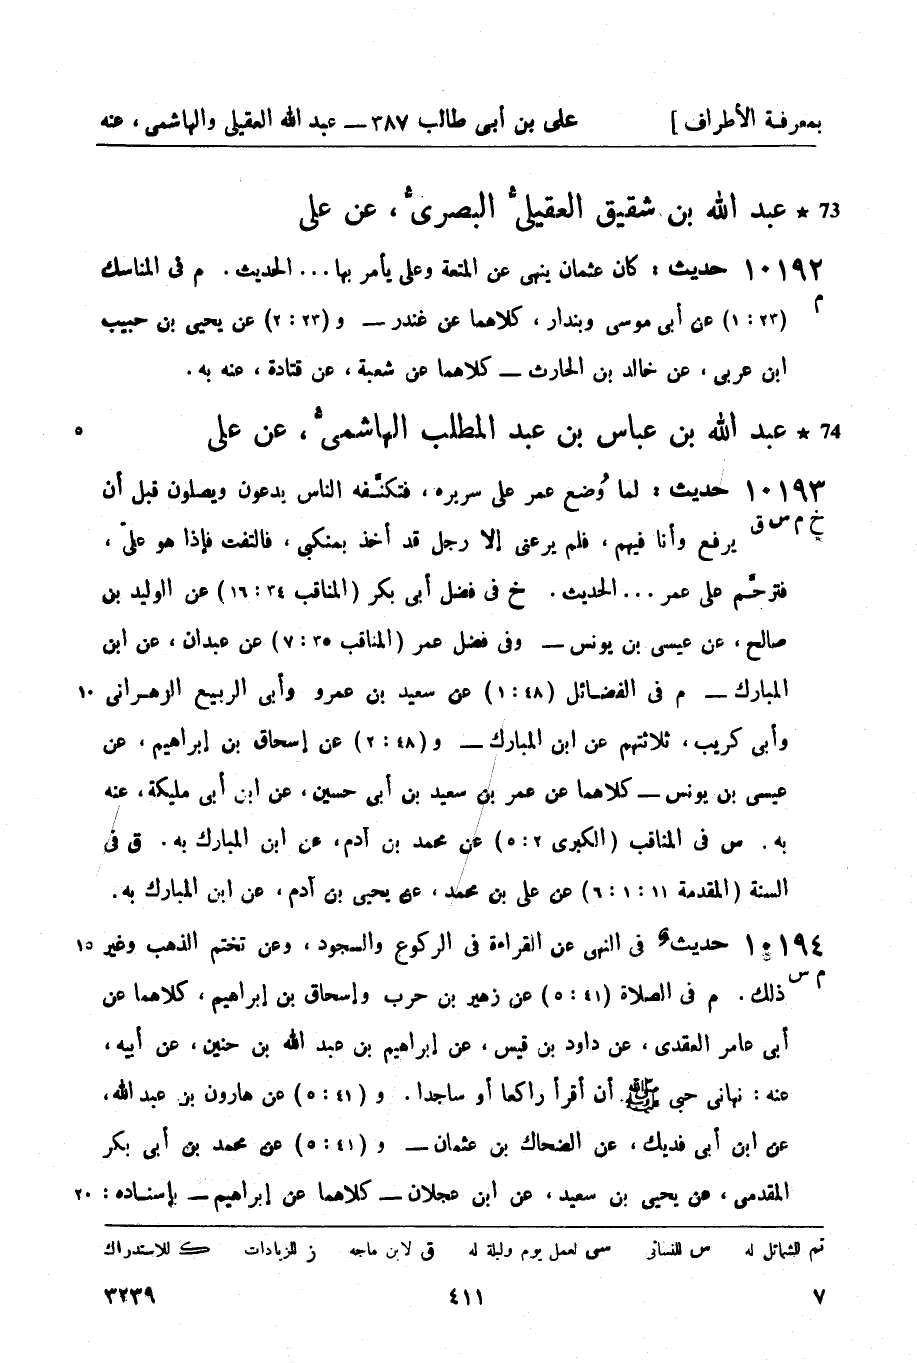 بمعرفة الأطراف ] علی بن أبی طالب ٣٨٧ — عبد الله العقیلی والهاشمی ، عنه
73 * عبد الله بن شقیق العقیلی البصری ، عن علی
١٠١٩٢ حدیث : کان عثمان ینهی عن المتعة وعلی یأمر بها ... الحدیث . م فی المناسك
م (٢٣ : ١) عن أبی موسی وبندار ، کلاهما عن غندر — و (٢٣ : ٢) عن یحیی بن حبیب
ابن عربی ، عن خالد بن الحارث — کلاهما عن شعبة ، عن قتادة ، عنه به .
74 * عبد الله بن عباس بن عبد المطلب الهاشمی ، عن علی ٥
١٠١٩٣ حدیث : لما وُضع عمر علی سریره ، فتکنَّفه الناس یدعون ویصلون قبل أن
خ م س ق یرفع وأنا فیهم ، فلم یرعنی إلا رجل قد أخذ بمنکبی ، فالتفت فإذا هو علیّ ،
فترحَّم علی عمر ... الحدیث . خ فی فضل أبی بکر (المناقب ٣٤ : ١٦) عن الولید بن
صالح ، عن عیسی بن یونس — وفی فضل عمر (المناقب ٣٥ : ٧) عن عبدان ، عن ابن
المبارك — م فی الفضـائل (٤٨ : ١) عن سعید بن عمرو وأبی الربیع الزهـرانی ١٠
وأبی کریب ، ثلاثتهم عن ابن المبارك — و (٤٨ : ٢) عن إسحاق بن إبراهیم ، عن
عیسی بن یونس — کلاهما عن عمر بن سعید بن أبی حسین ، عن ابن أبی ملیکة ، عنه
به . س فی المناقب (الکبری ٢ : ٥) عن محمد بن آدم ، عن ابن المبارك به . ق فی
السنة (المقدمة ١١ : ١ : ٦) عن علی بن محمد ، عن یحیی بن آدم ، عن ابن المبارك به .
١٠١٩٤ حدیث فی النهی عن القراءة فی الرکوع والسجود ، وعن تختم الذهب وغیر ١٥
م س ذلك . م فی الصلاة (٤١ : ٥) عن زهیر بن حرب وإسحاق بن إبراهیم ، کلاهما عن
أبی عامر العقدی ، عن داود بن قیس ، عن إبراهیم بن عبد الله بن حنین ، عن أبیه ،
عنه : نهانی حبی ﷺ أن أقرأ راکعا أو ساجدا . و (٤١ : ٥) عن هارون بن عبد الله ،
عن ابن أبی فدیك ، عن الضحاك بن عثمان — و (٤١ : ٥) عن محمد بن أبی بکر
المقدمی ، عن یحیی بن سعید ، عن ابن عجلان — کلاهما عن إبراهیم — بإسنـاده : ٢٠
تم للشمائل له س للنسائی سی لعمل یوم ولیلة له ق لابن ماجه ز للزیادات ك للاستدراك
٧ ٤١١ ٣٢٣٩